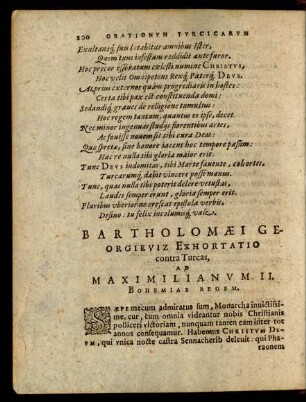 200 ORATIONVM TVRCICARVM
Exultansq́; suis lætabitur amnibus Ister,
Quem tunc infestum reddidit ante furor.
Hoc precor efficiatum cœlesti numine CHRISTVS,
Hoc velit Omnipotens Rexq́; Paterq́; DEVS.
At prius externos quàm progrediaris in hostes:
Certa tibi pax est constituenda domi:
Sedandiq́; graues de religione tumultus:
Hoc regem tantum, quantus es ipse, decet.
Nec minor ingenuas studijs florentibus artes,
Ac fouisse nouem sit tibi cura Deas:
Quæ spretæ, sine honore iacent hoc tempore passim:
Hac re nulla tibi gloria maior erit.
Tunc DEVS indomitas, tibi Marte fauente, cohortes,
Turcarumq́; dabit vincere posse manus.
Tunc, quas nulla tibi poterit delere vetustas,
Laudes semper erunt, gloria semper erit.
Pluribus vberior ne crescat epistola verbis,
Desino: tu felix incolumisq́; vale.
BARTHOLOMÆI GE-
ORGIEVIZ EXHORTATIO
contra Turcas,
AD
MAXIMILIANVM. II.
BOHEMIAE REGEM.
SÆPE mecum admiratus sum, Monarcha inuictissi-
me, cur, cum omnia videantur nobis Christianis
polliceri victoriam, nunquam tamen eam inter tot
annos consequamur. Habemus CHRISTVM DE-
VM, qui vnica nocte castra Sennacherib deleuit: qui Pha-
raonem